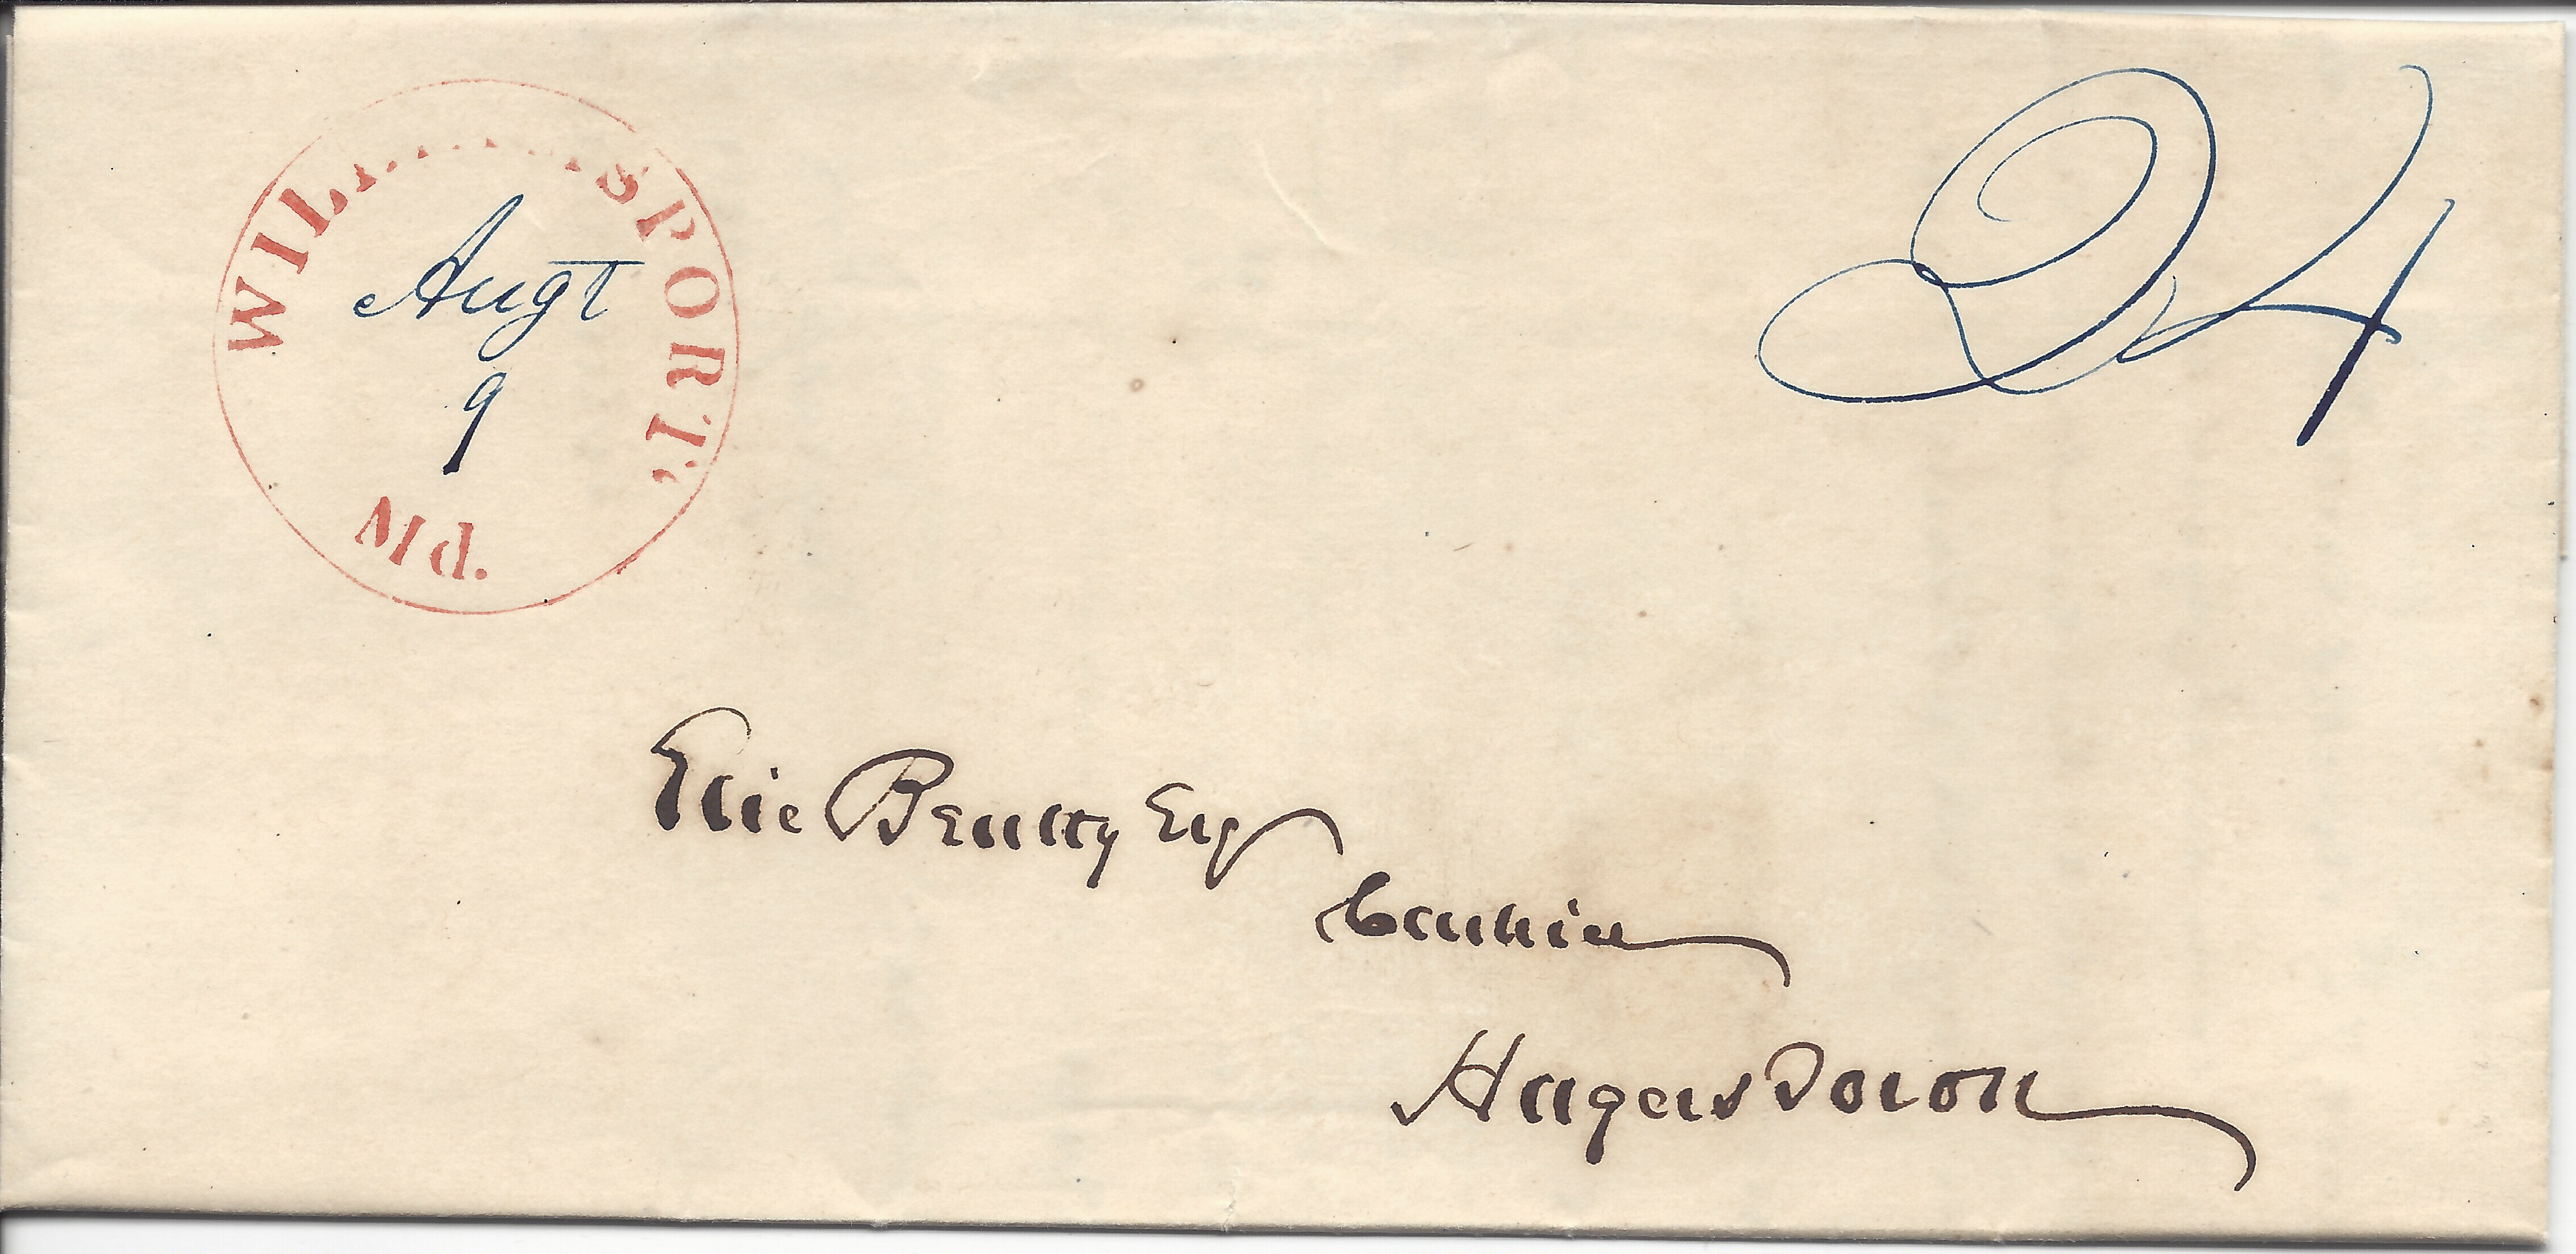 WIL.........SPORT.
Augt
9
Md.
24
Elie Beatty Esq
Cashier
Hagerstown